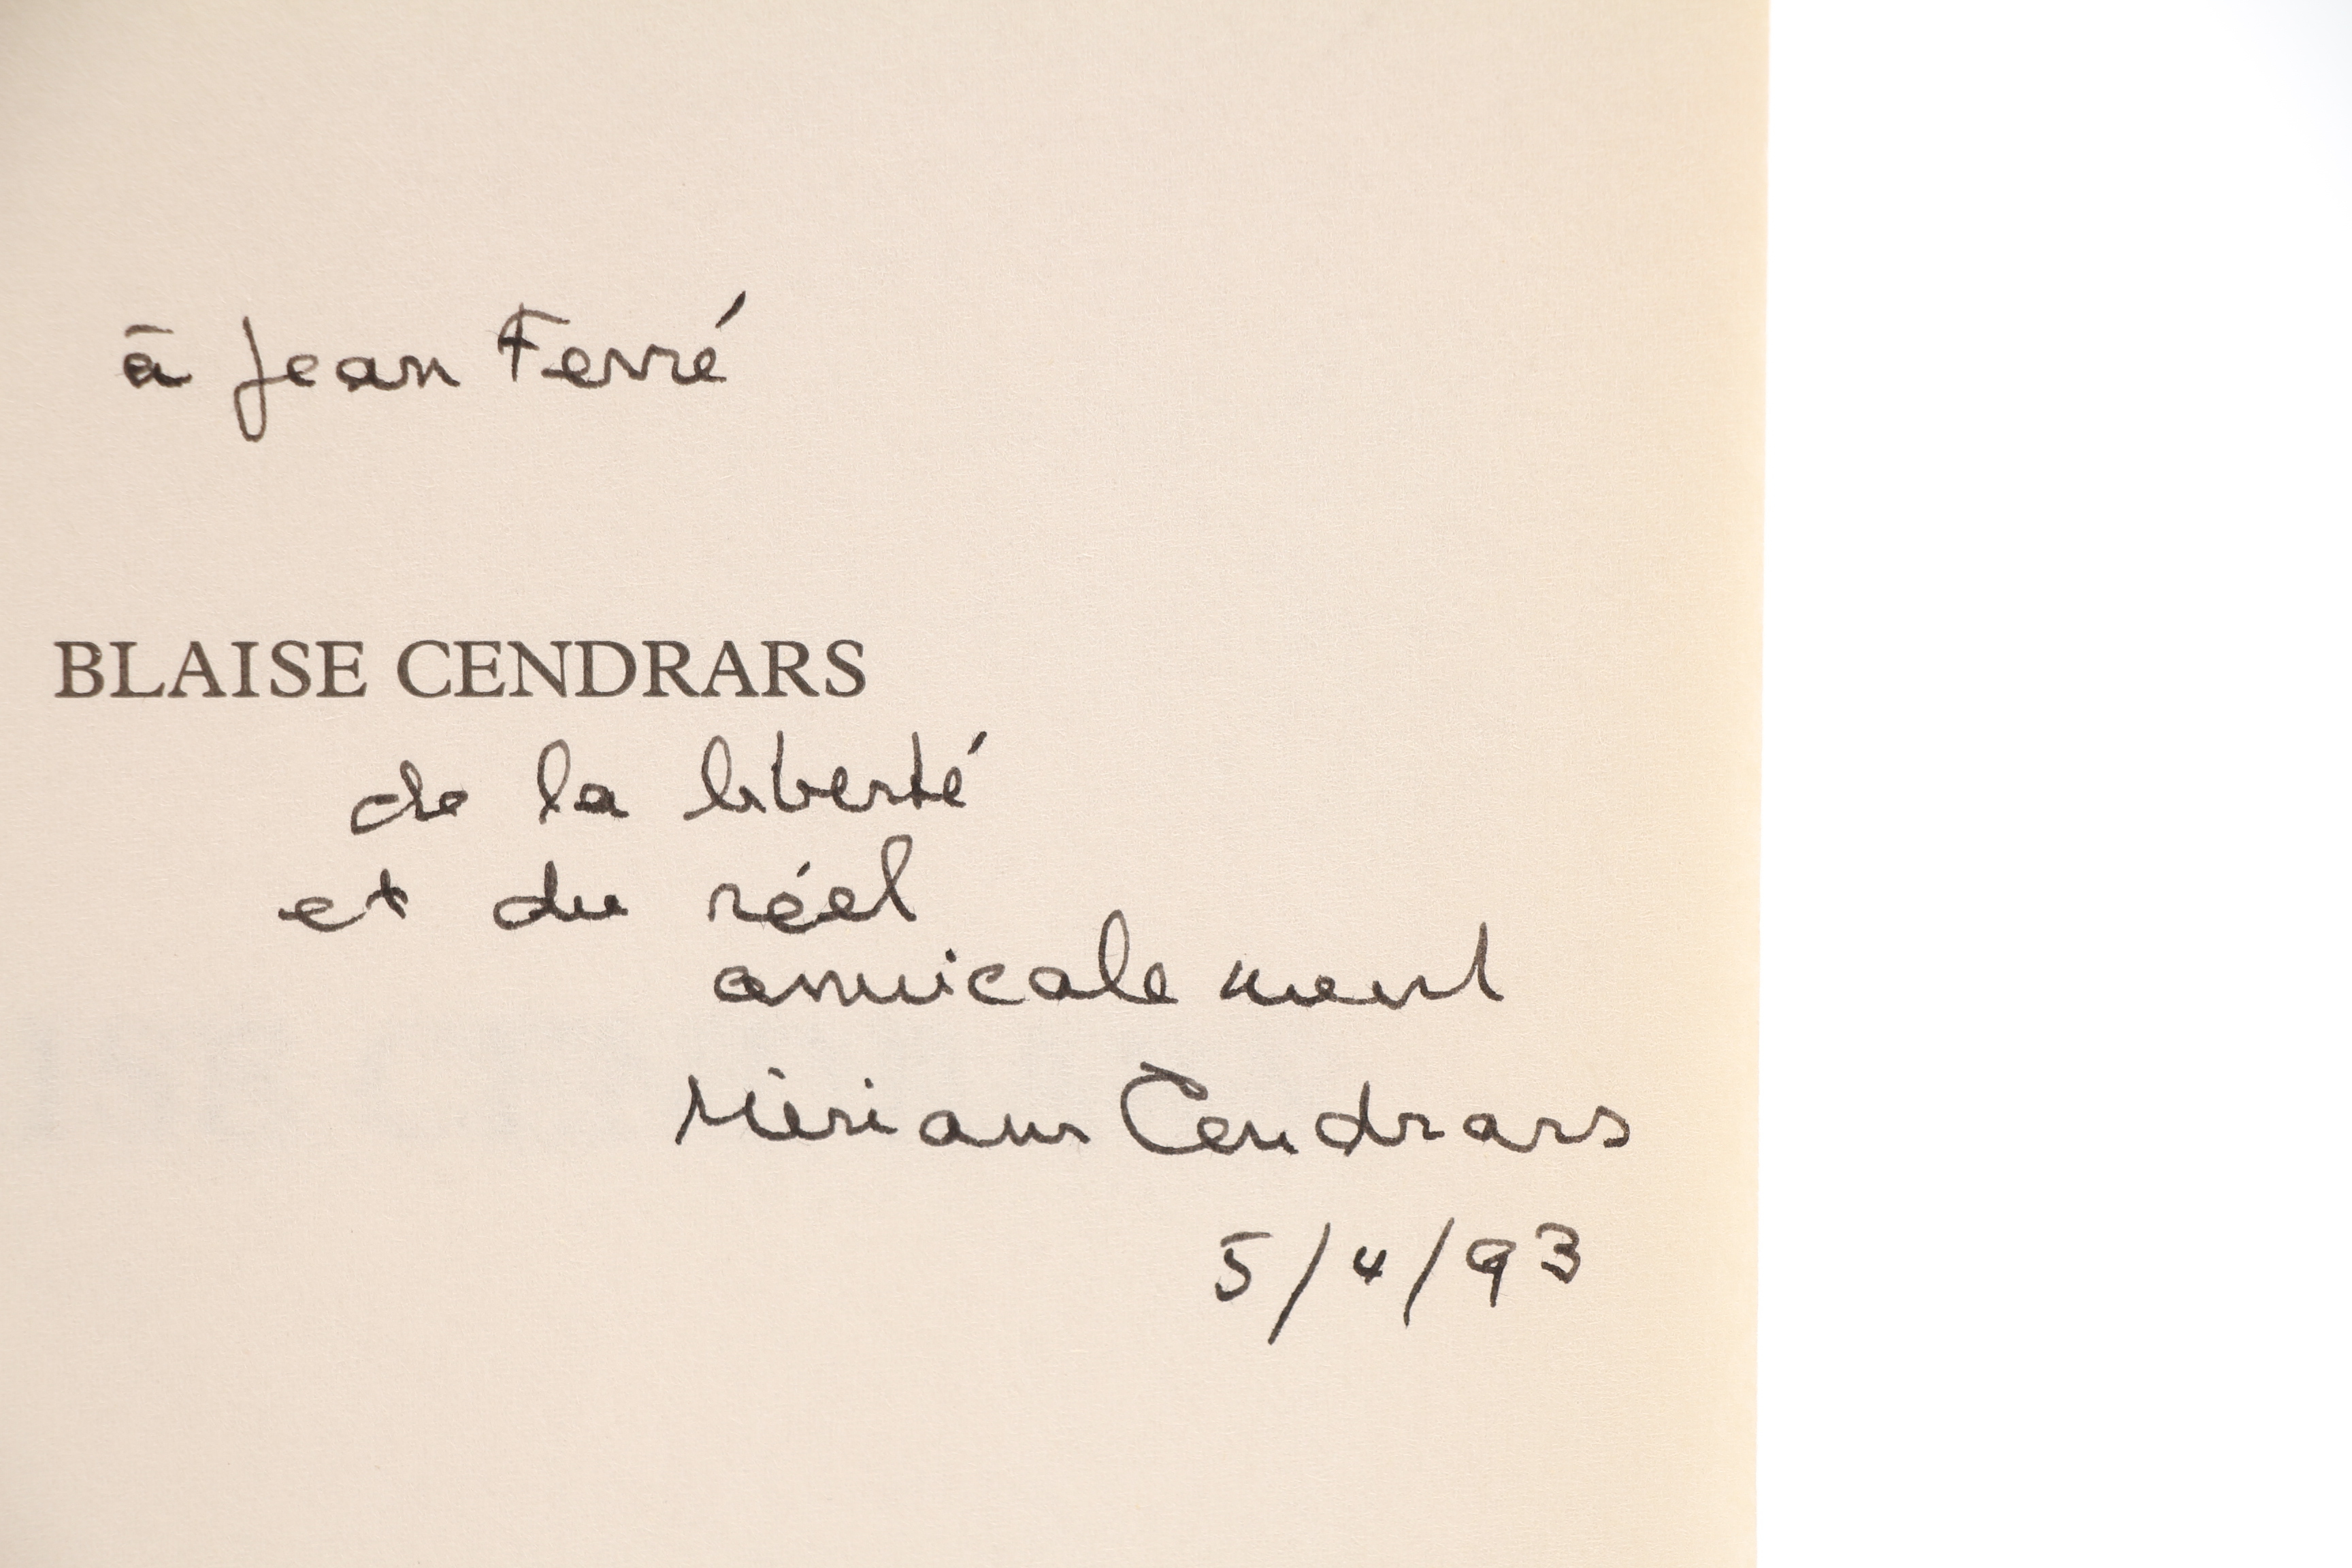 à Jean Ferré
BLAISE CENDRARS
de la liberté
et du réel
amicalement
Miriam Cendrars
5/4/93